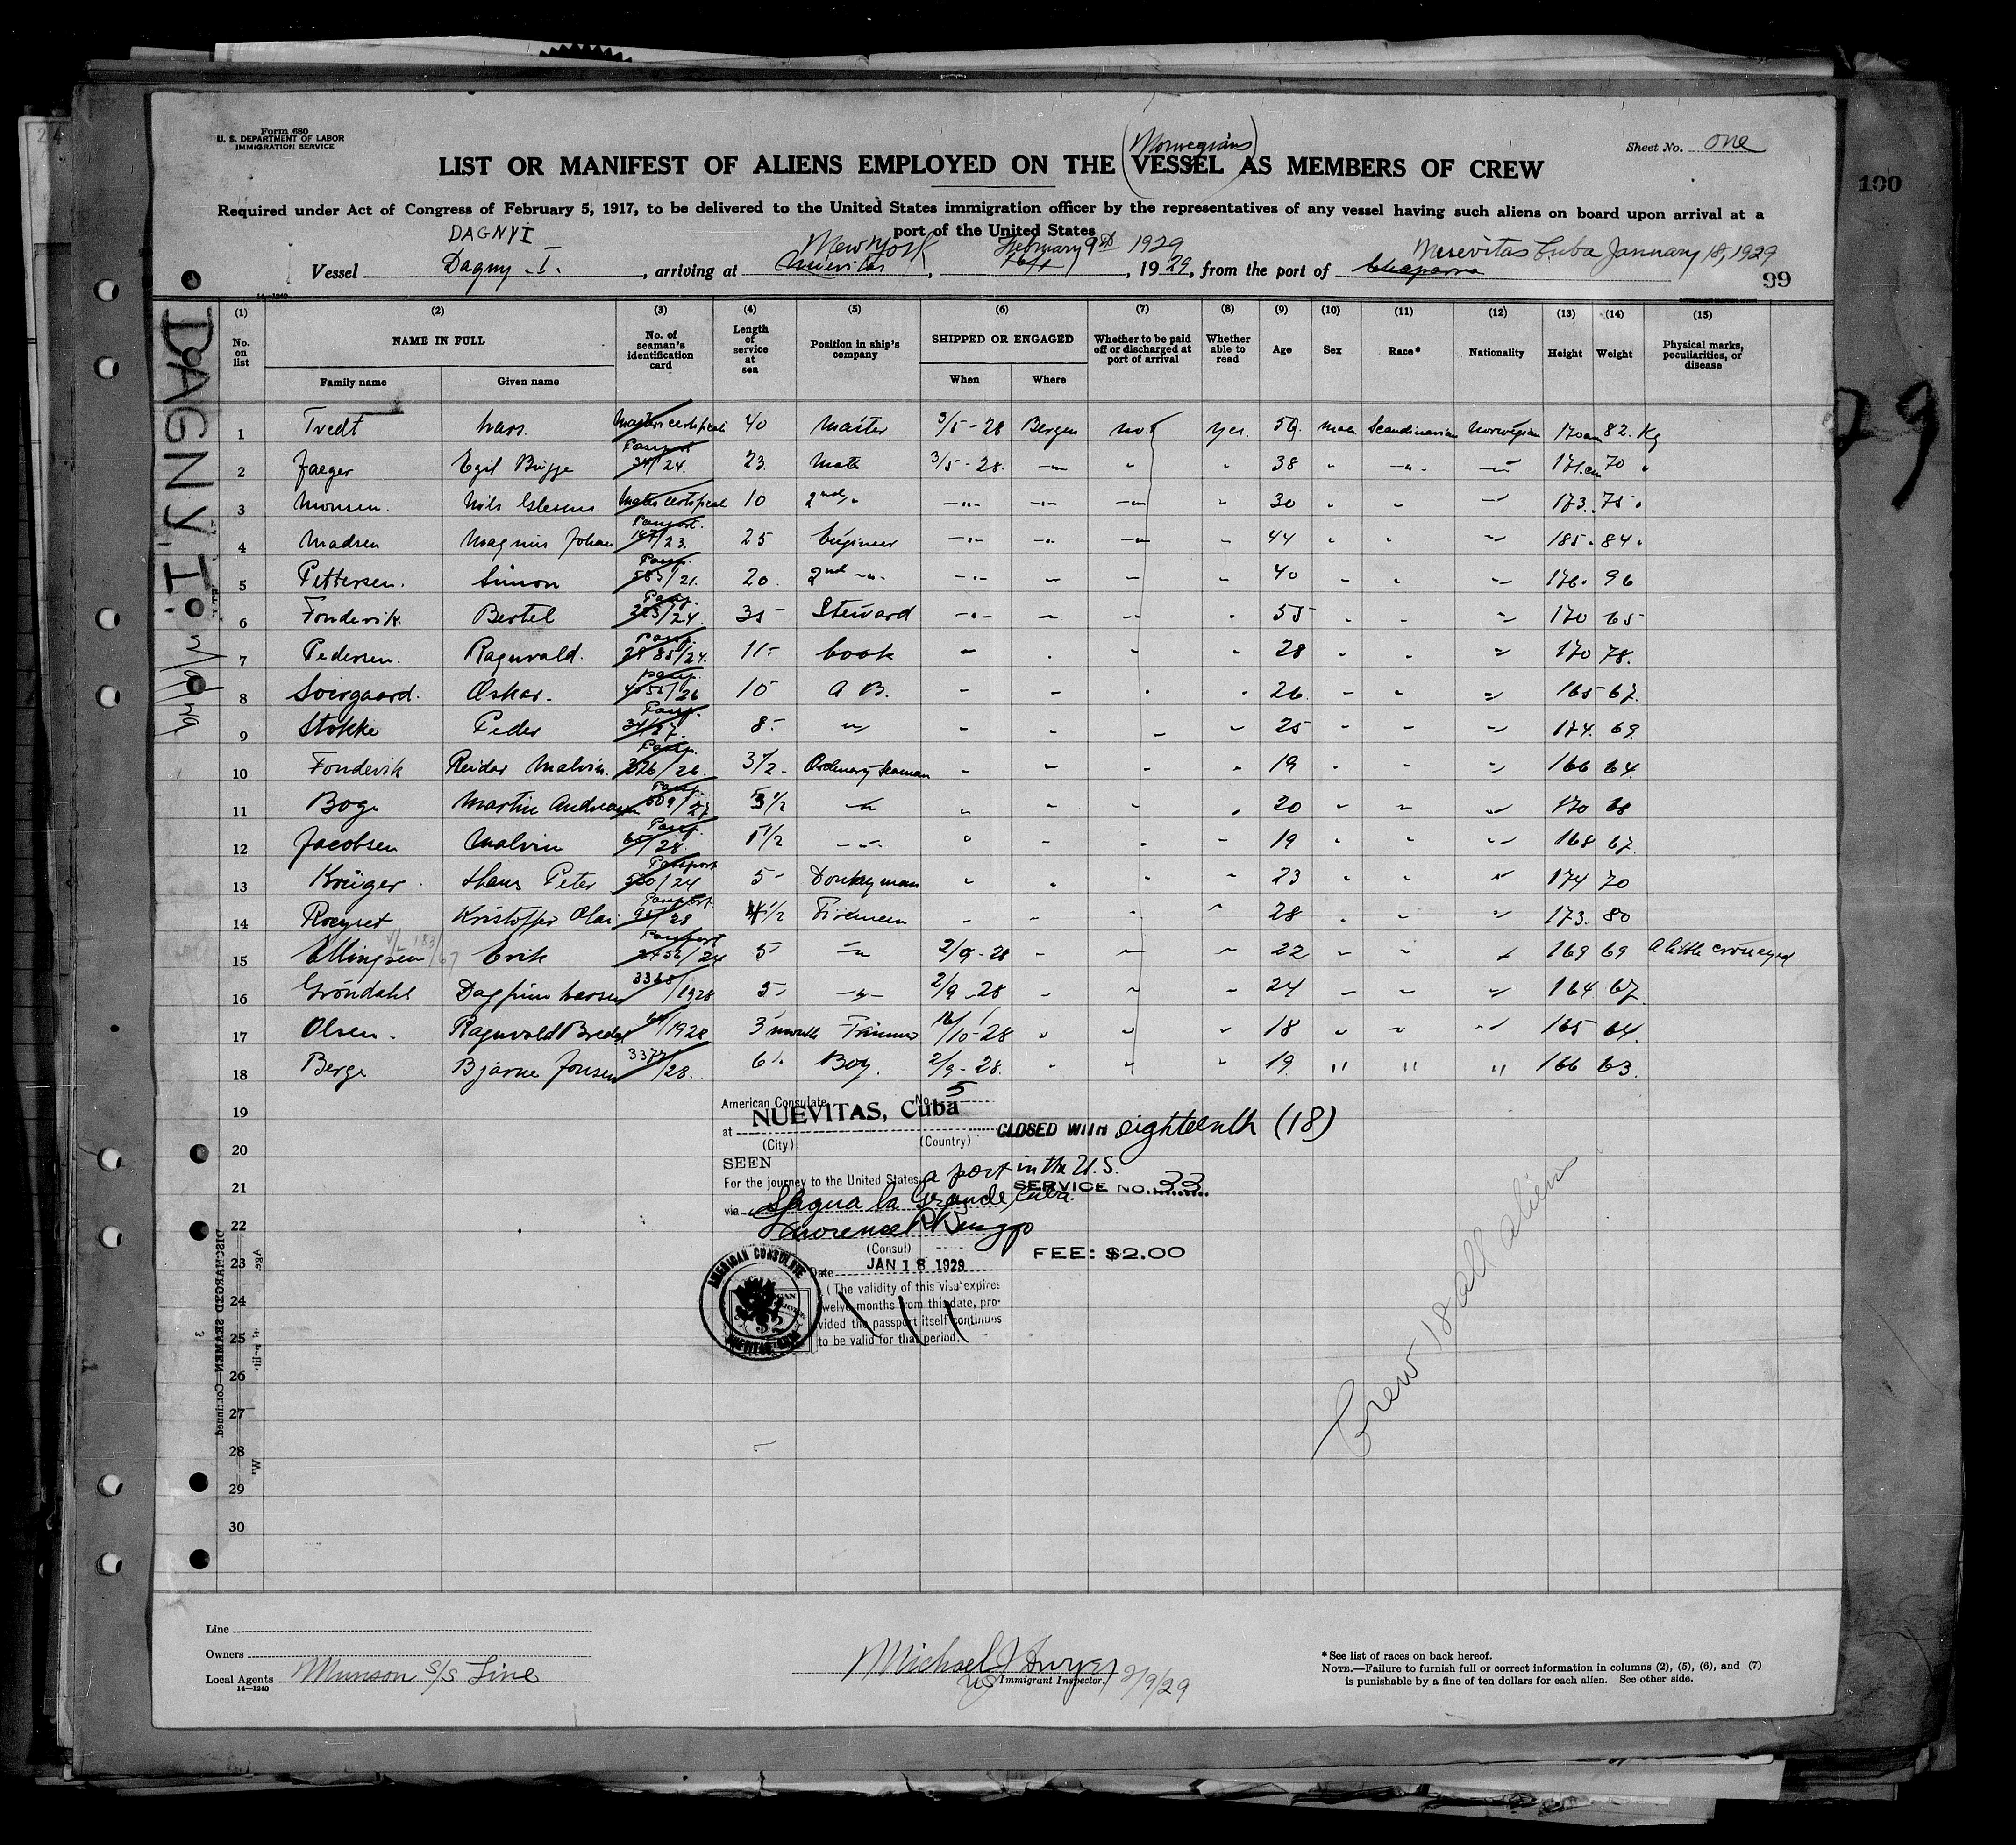 Form 680
U. S. DEPARTMENT OF LABOR
IMMIGRATION SERVICE
Sheet No. one
100
(Norwegians)
LIST OR MANIFEST OF ALIENS EMPLOYED ON THE VESSEL AS MEMBERS OF CREW
Required under Act of Congress of February 5, 1917, to be delivered to the United States immigration officer by the representatives of any vessel having such aliens on board upon arrival at a
port of the United States
DAGNY I New York February 9th 1929 Nuevitas Cuba January 18, 1929
Vessel Dagny I. , arriving at Nuevitas , 1929, from the port of Chaparra
99
14-1240
DAGNY I.
(1) (2) (3) (4) (5) (6) (7) (8) (9) (10) (11) (12) (13) (14) (15)
No. on list NAME IN FULL No. of seaman's identification card Length of service at sea Position in ship's company SHIPPED OR ENGAGED Whether to be paid off or discharged at port of arrival Whether able to read Age Sex Race* Nationality Height Weight Physical marks, peculiarities, or disease
Family name Given name When Where
1 Tvedt Lars. Masters certificat 40 Master 3/5-28 Bergen no. yes. 59. male Scandinavian Norwegian 170 cm 82. Kg
2 Jaeger Egil Brigge Passport 34/24. 23 Mate 3/5-28. -"- " " 38 " -"- -"- 171.cm 70 "
3 Monsen. Nils Mates certificat 10 2nd " -"- -"- -"- " 30 " " -"- 173. 75 "
4 Madsen Magnus Johan Passport. 147/23. 25 Engineer -"- -"- -"- " 44 " " -"- 185. 84.
5 Pettersen. Simon Passp. 585/21. 20. 2nd -"- -"- " " " 40 " " " 176. 96
6 Fondevik. Bertel Passp. 325/24. 35 Steward -"- " " " 55 " " " 170 65
7 Pedersen. Ragnvald. Passp. 2885/24. 11 Cook " " " " 28 " " " 170 78.
8 Soergaard. Oskar. Passp. 4055/26 10 A B. " " " " 26. " " " 165 67.
9 Stokke Peder Passp. 34/27. 8 " " " " " 25 " " " 174. 69.
10 Fondevik Reidar Malvin. Passp. 326/26. 3 1/2 Ordinary Seaman " " " " 19 " " " 166 64.
11 Boge Martin Andreasen Passp. 509/27 3 1/2 " " " " " 20 " " " 170 68
12 Jacobsen Malvin Passp. 65/28. 1 1/2 -"- " " " " 19 " " " 168 67.
13 Krüger. Hans Peter Passport 580/24 5 Donkeyman " " " " 23 " " " 174 70
14 Roeyset Kristoffer Olai Passport. 95/28 4 1/2 Firemen " " " " 28 " " " 173. 80
15 Ellingsen Erik Passport 2456/24 5 " 2/9-28 " " " 22 " " " 169 69 A little crosseyed
16 Gröndahl Dagfinn Larsen 3368/1928 5 -"- 2/9-28 " " " 24 " " " 164 67.
17 Olsen. Ragnvald Bredal 64/1928 3 month Trimmer 16/10-28 " " " 18 " " " 165 64.
18 Berge Bjarne Jonsen 3372/28. 6 Boy. 2/9-28. " " " 19. " " " 166 63.
19
20
21
22
23
24
25
26
27
28
29
30
American Consulate No. 5
at NUEVITAS, Cuba
(City) (Country)
CLOSED WITH eighteenth (18)
SEEN
For the journey to the United States a port in the U.S.
SERVICE NO. 33
via Sagua la Grande, Cuba.
(Consul)
FEE: $2.00
Date JAN 18 1929
(The validity of this visa expires
twelve months from this date, pro-
vided the passport itself continues
to be valid for that period.
AMERICAN CONSULATE
NUEVITAS, CUBA
Crew 18 all aliens
DISCHARGED SEAMEN—Continued
Line
Owners
Local Agents Munson S/S Line
14-1240
Michael J Dwyer
US Immigrant Inspector. 2/9/29
* See list of races on back hereof.
NOTE.—Failure to furnish full or correct information in columns (2), (5), (6), and (7)
is punishable by a fine of ten dollars for each alien. See other side.